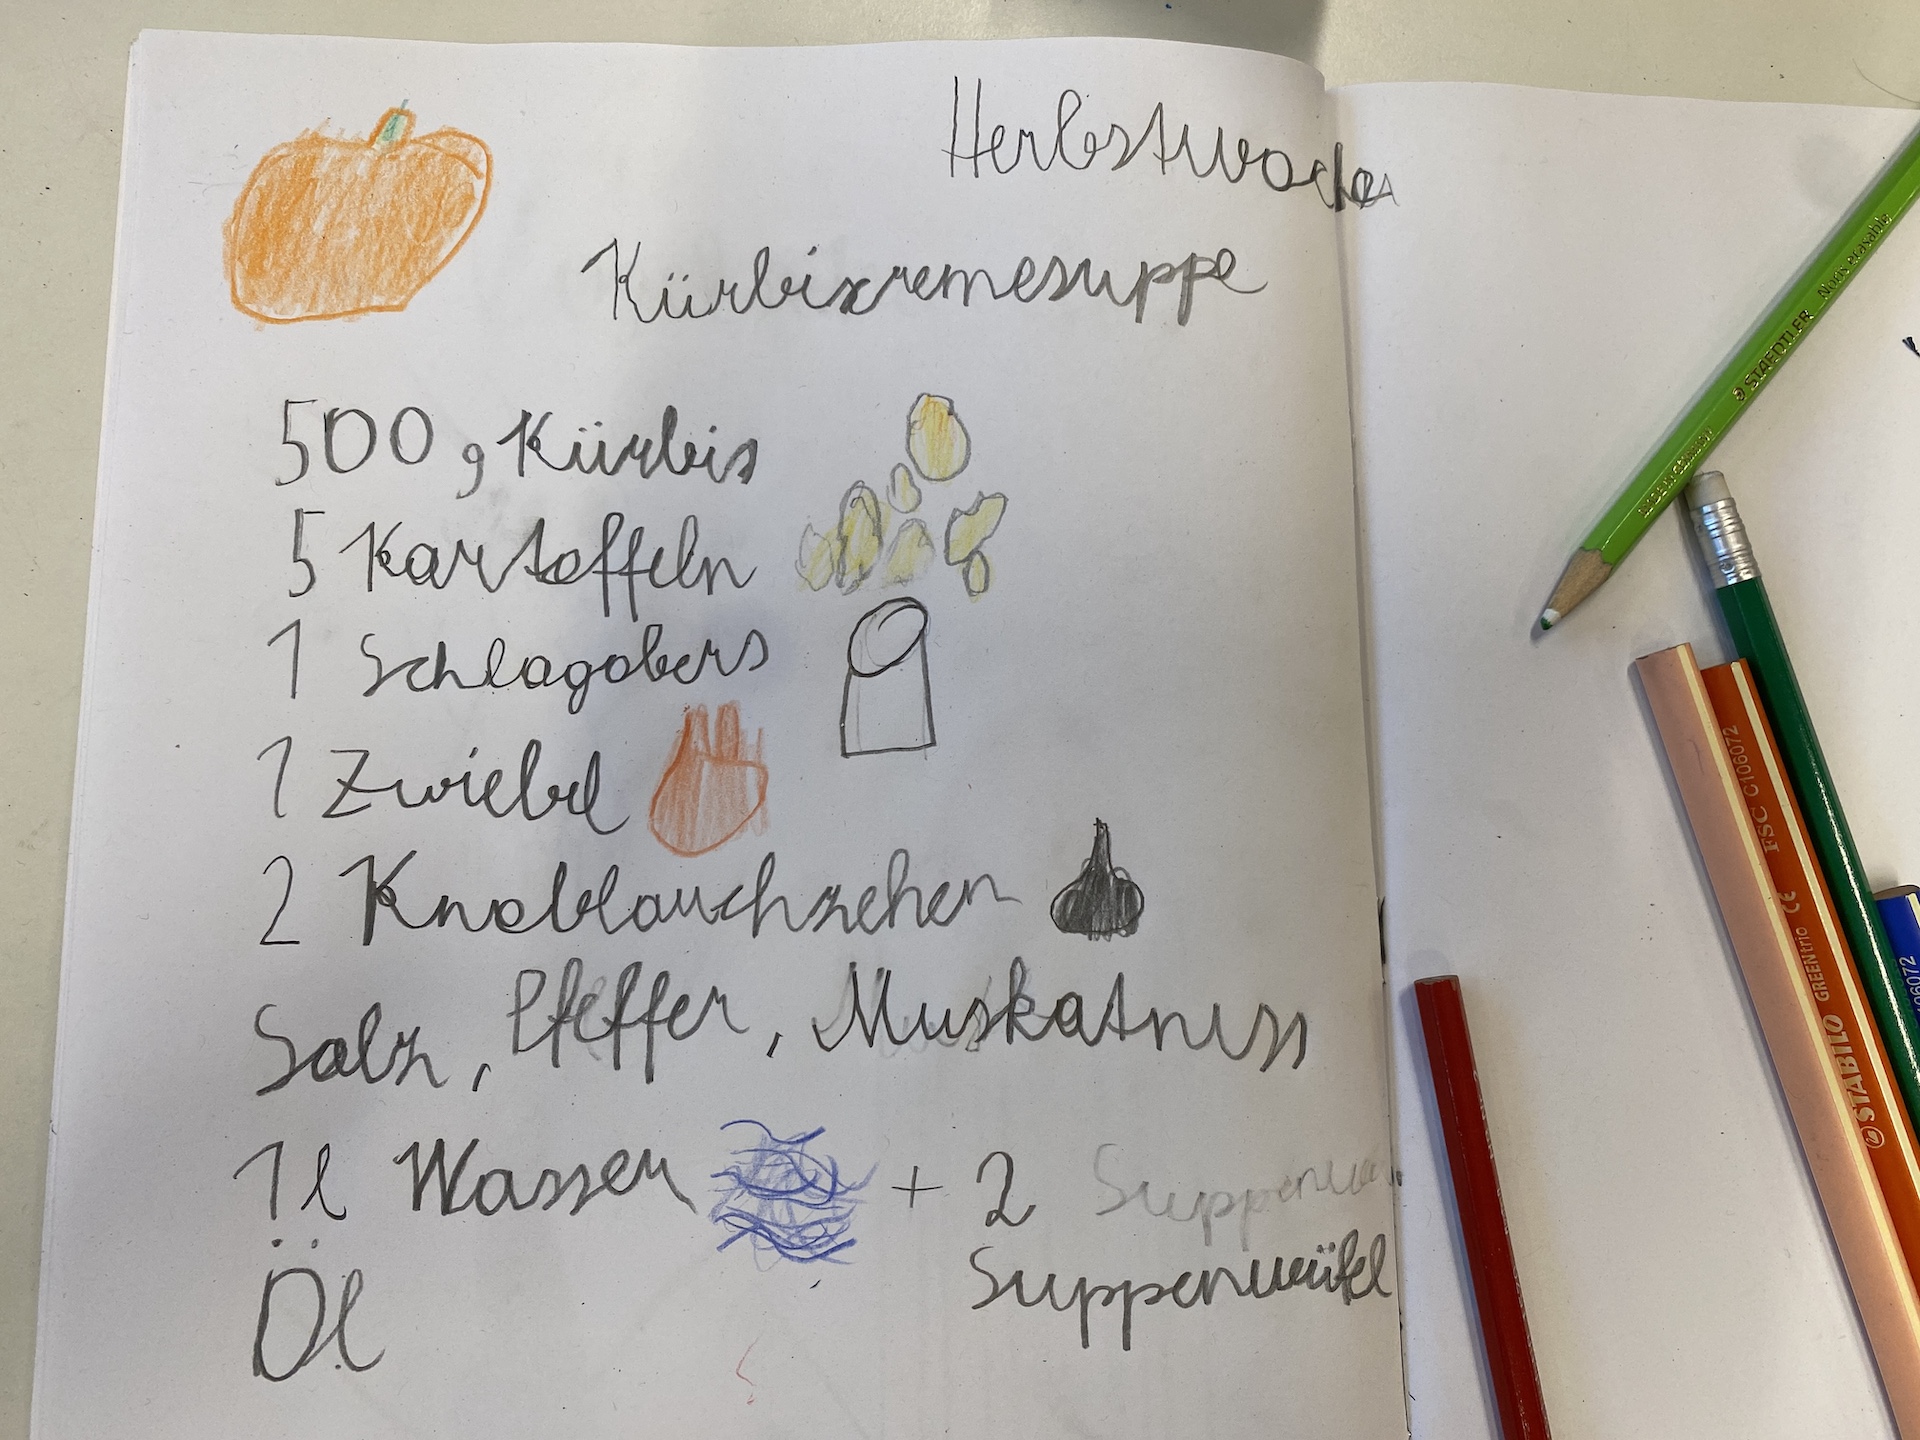 Herbstwoche
Kürbixremesuppe
500 g Kürbis
5 Kartoffeln
1 Schlagobers
1 Zwiebel
2 Knoblauchzehen
Salz, Pfeffer, Muskatnuss
1 l Wasser + 2
Suppenwüfel
Öl
STAEDTLER Noris erasable
MADE IN GERMANY
STABILO GREENtrio CE FSC C106072
06072